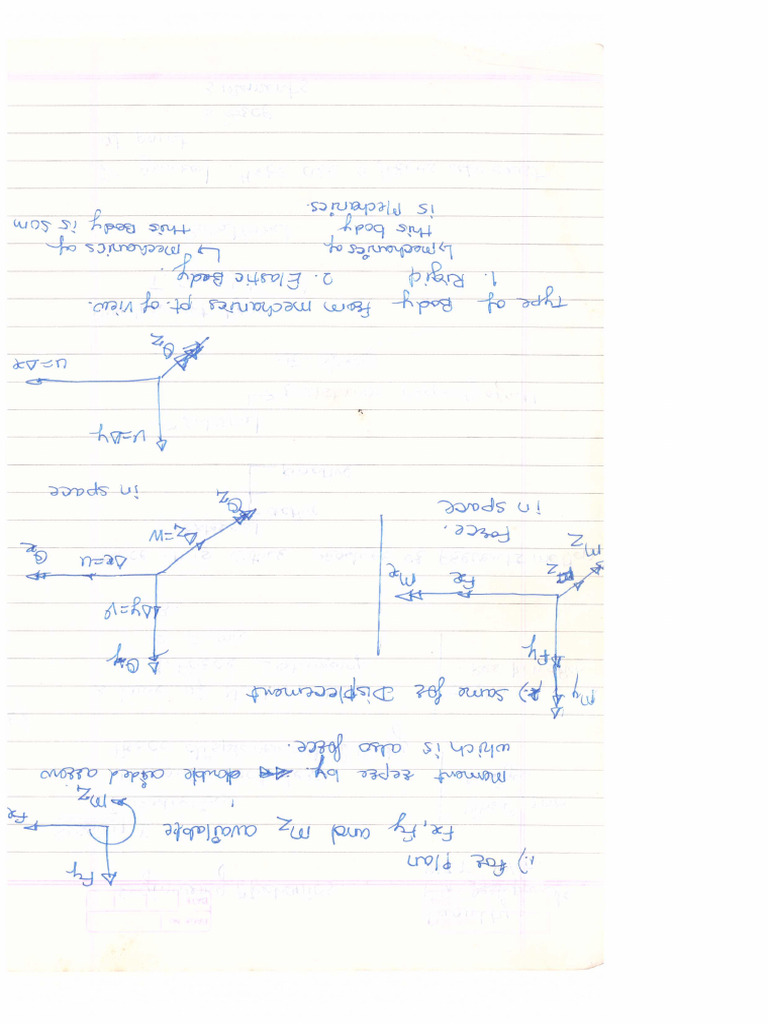 1.) For Plan
Fx, Fy and Mz available
Fy
Fx
Mz
moment repre by double added arrow
which is also force.
2.) same for Displecement
My
Fy
Fx
Mx
Fz
Mz
Force.
in space
θy
Δy=V
Δx=U
θx
Δz=W
θz
in space
U=Δy
U=Δx
θz
Type of Body from mechanics pt. of view.
1. Rigid 2. Elastic Body.
↳ mechanics of ↳ mechanics of
this body this Body is som
is Mechanics.